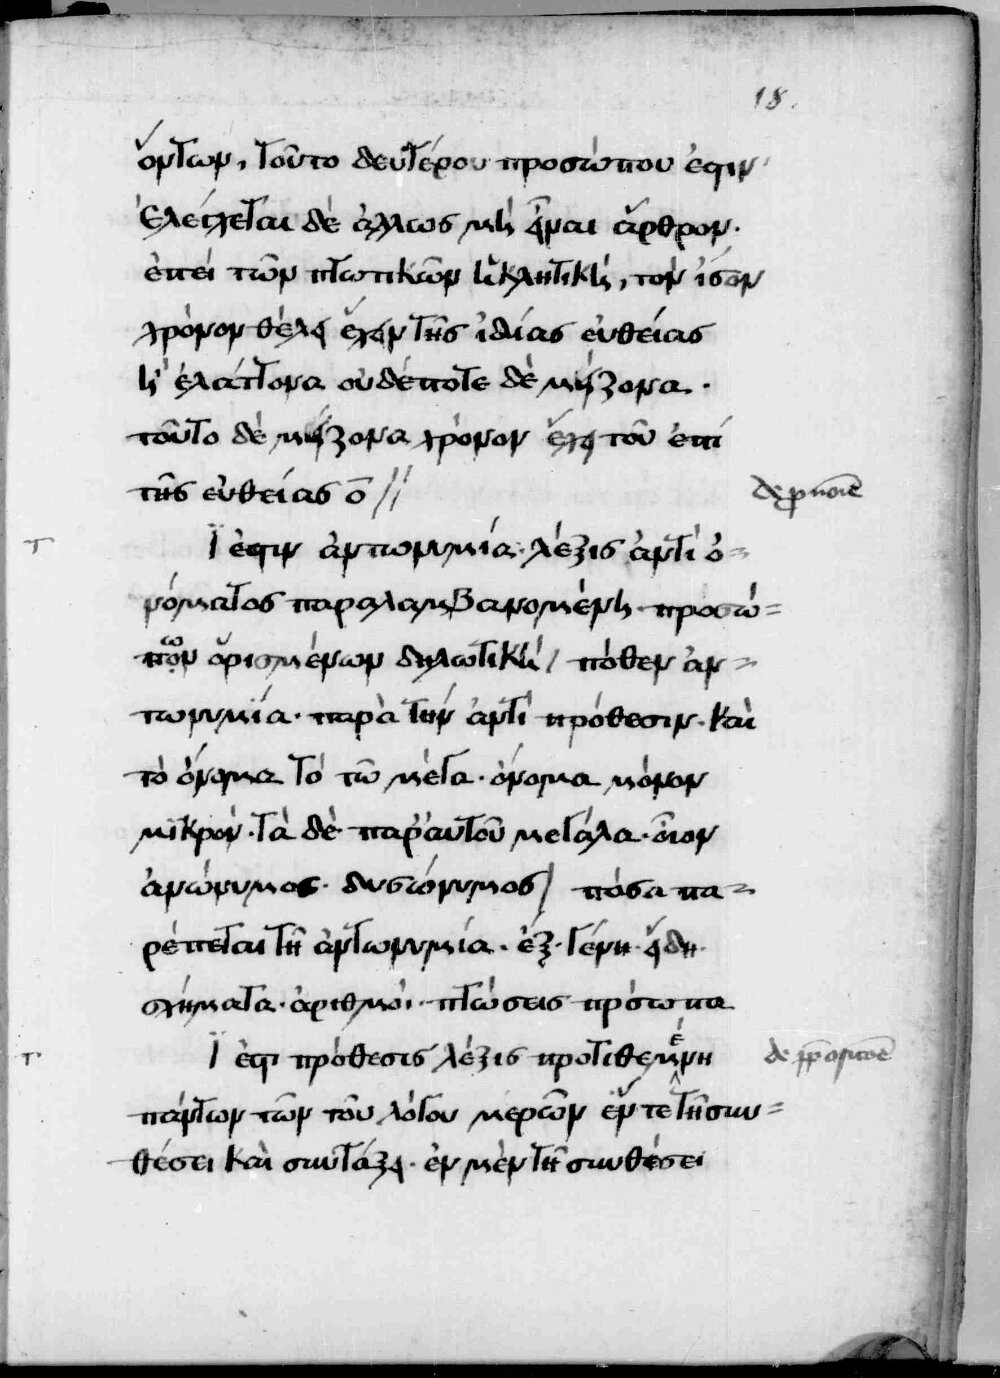 18.
ὄντων, τοῦτο δευτέρου προσώπου ἐστιν
ἐλέγχεται δὲ ἄλλως μὴ εἶναι ἄρθρον.
ἐπεὶ τῶν πτωτικῶν ἡ κλητικὴ, τὸν ἴσον
χρόνον θέλει ἔχειν τῆς ἰδίας εὐθείας
ἢ ἐλάττονα οὐδέποτε δὲ μείζονα.
τοῦτο δὲ μείζονα χρόνον ἔχει τοῦ ἐπὶ
τῆς εὐθείας ὁ //
de pronoie
Τί ἐστιν ἀντωνυμία· λέξις ἀντὶ ὀ=
νόματος παραλαμβανομένη· προσώ=
πων ὁρισμένων δηλωτική / πόθεν ἀν=
τωνυμία· παρὰ τὴν ἀντὶ πρόθεσιν· καὶ
τὸ ὄνομα τὸ τῶ μέγα· ὄνομα μόνον
μικρόν· τὰ δὲ παρ' αὐτοῦ μεγάλα· οἷον
ἀνώνυμος· δυσώνυμος / πόσα πα=
ρέπεται τῆ ἀντωνυμία· ἕξ· γένη· εἴδη·
σχήματα· ἀριθμοὶ· πτώσεις πρόσωπα
Τί ἐστι πρόθεσις λέξις προτιθεμένη
πάντων τῶν τοῦ λόγου μερῶν ἔν τε τῆ συν=
θέσει καὶ συντάξει· ἐν μὲν τῆ συνθέσει